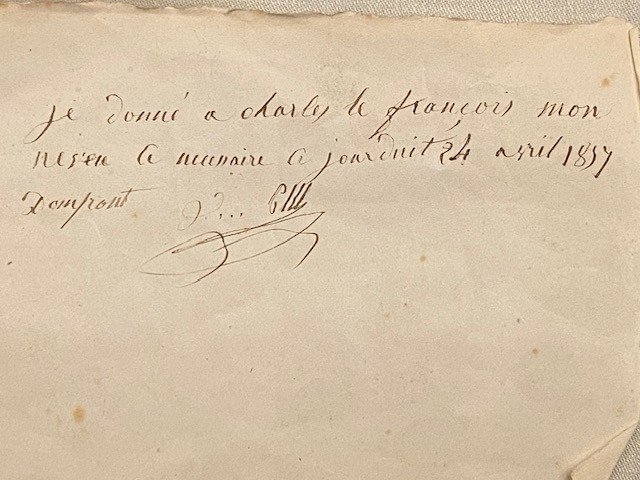 je donné a charles le françois mon
neveu le meunaire le jourduit 24 avril 1857
Domfront